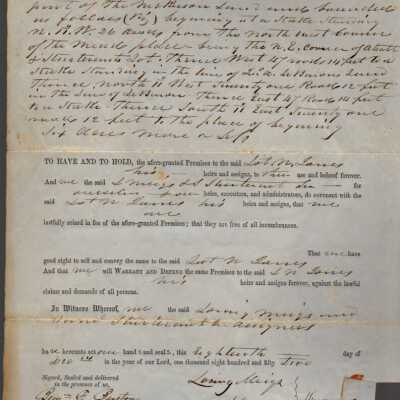 part of the
as follows (viz) Beginning at a Stake standing
N. 18. W. 26 Rods from the North west corner
of the Mead place being the N.E. corner of
& Stuartevants Lot. Thence West 47 rods 14 feet to a
Stake Standing in the line of Lessons Land
Thence North 11 West Twenty one Rods 12 feet
in the line of Lessons Thence East 47 Rods 14 feet
to a Stake Thence South 11 East Twenty one
rods 12 feet to the place of beginning
Six Acres more or less
TO HAVE AND TO HOLD, the afore-granted Premises to the said Lot N. Lanes
his heirs and assigns, to their use and behoof forever.
And we the said L Meigs &
ourselves our heirs, executors, and administrators, do covenant with the
said Lot N Lanes his heirs and assigns, that we
are
lawfully seized in fee of the afore-granted Premises; that they are free of all incumbrances.
That we have
good right to sell and convey the same to the said Lot N Lanes
And that we will WARRANT AND DEFEND the same Premises to the said L N Lanes
his heirs and assigns forever, against the lawful
claims and demands of all persons.
In Witness Whereof, we the said Loring Meigs and
assigners
ha hereunto set our hand and seal, this Eighteenth day of
Dec in the year of our Lord, one thousand eight hundred and fifty Five
Signed, Sealed and delivered
in the presence of us,
Loring Meigs